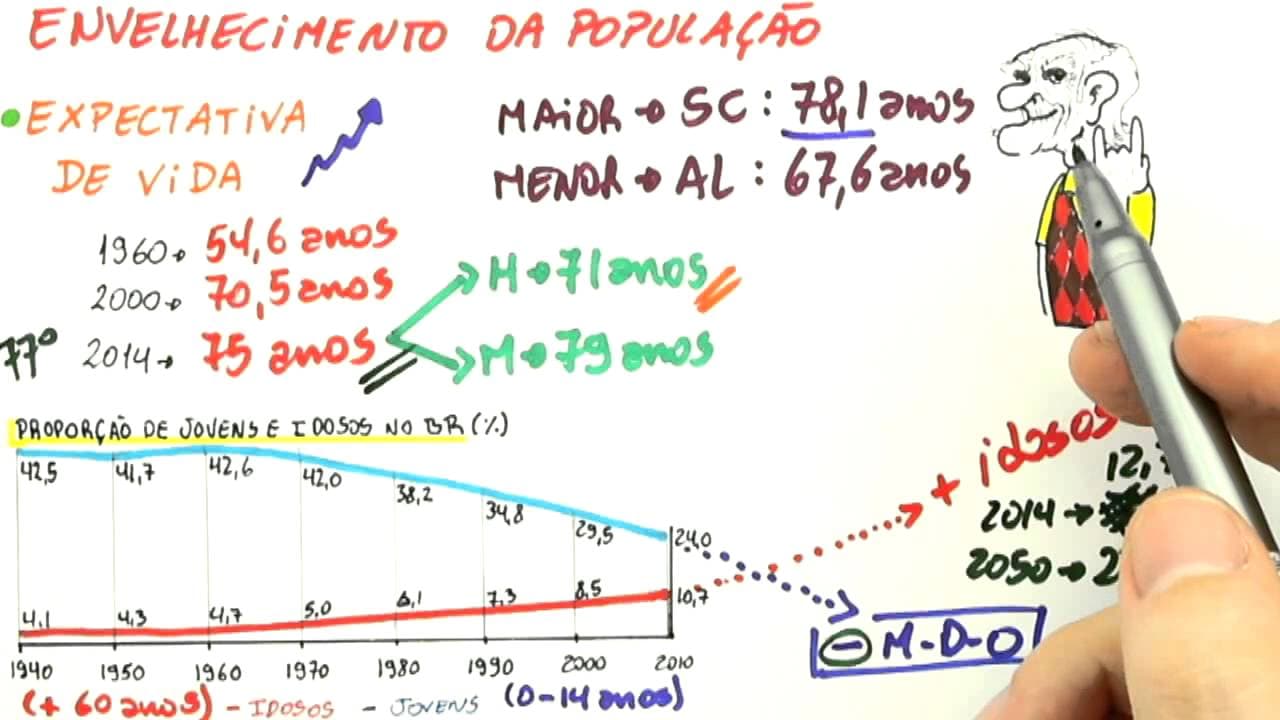 ENVELHECIMENTO DA POPULAÇÃO
• EXPECTATIVA
DE VIDA
MAIOR → SC : 78,1 anos
MENOR → AL : 67,6 anos
1960 → 54,6 anos
2000 → 70,5 anos
77º 2014 → 75 anos
H → 71 anos
M → 79 anos
PROPORÇÃO DE JOVENS E IDOSOS NO BR (%)
42,5 41,7 42,6 42,0 38,2 34,8 29,5 24,0
4,1 4,3 4,7 5,0 6,1 7,3 8,5 10,7
1940 1950 1960 1970 1980 1990 2000 2010
(+ 60 anos) - IDOSOS - JOVENS (0-14 anos)
+ idosos
2014 →
2050 →
- M-D-O